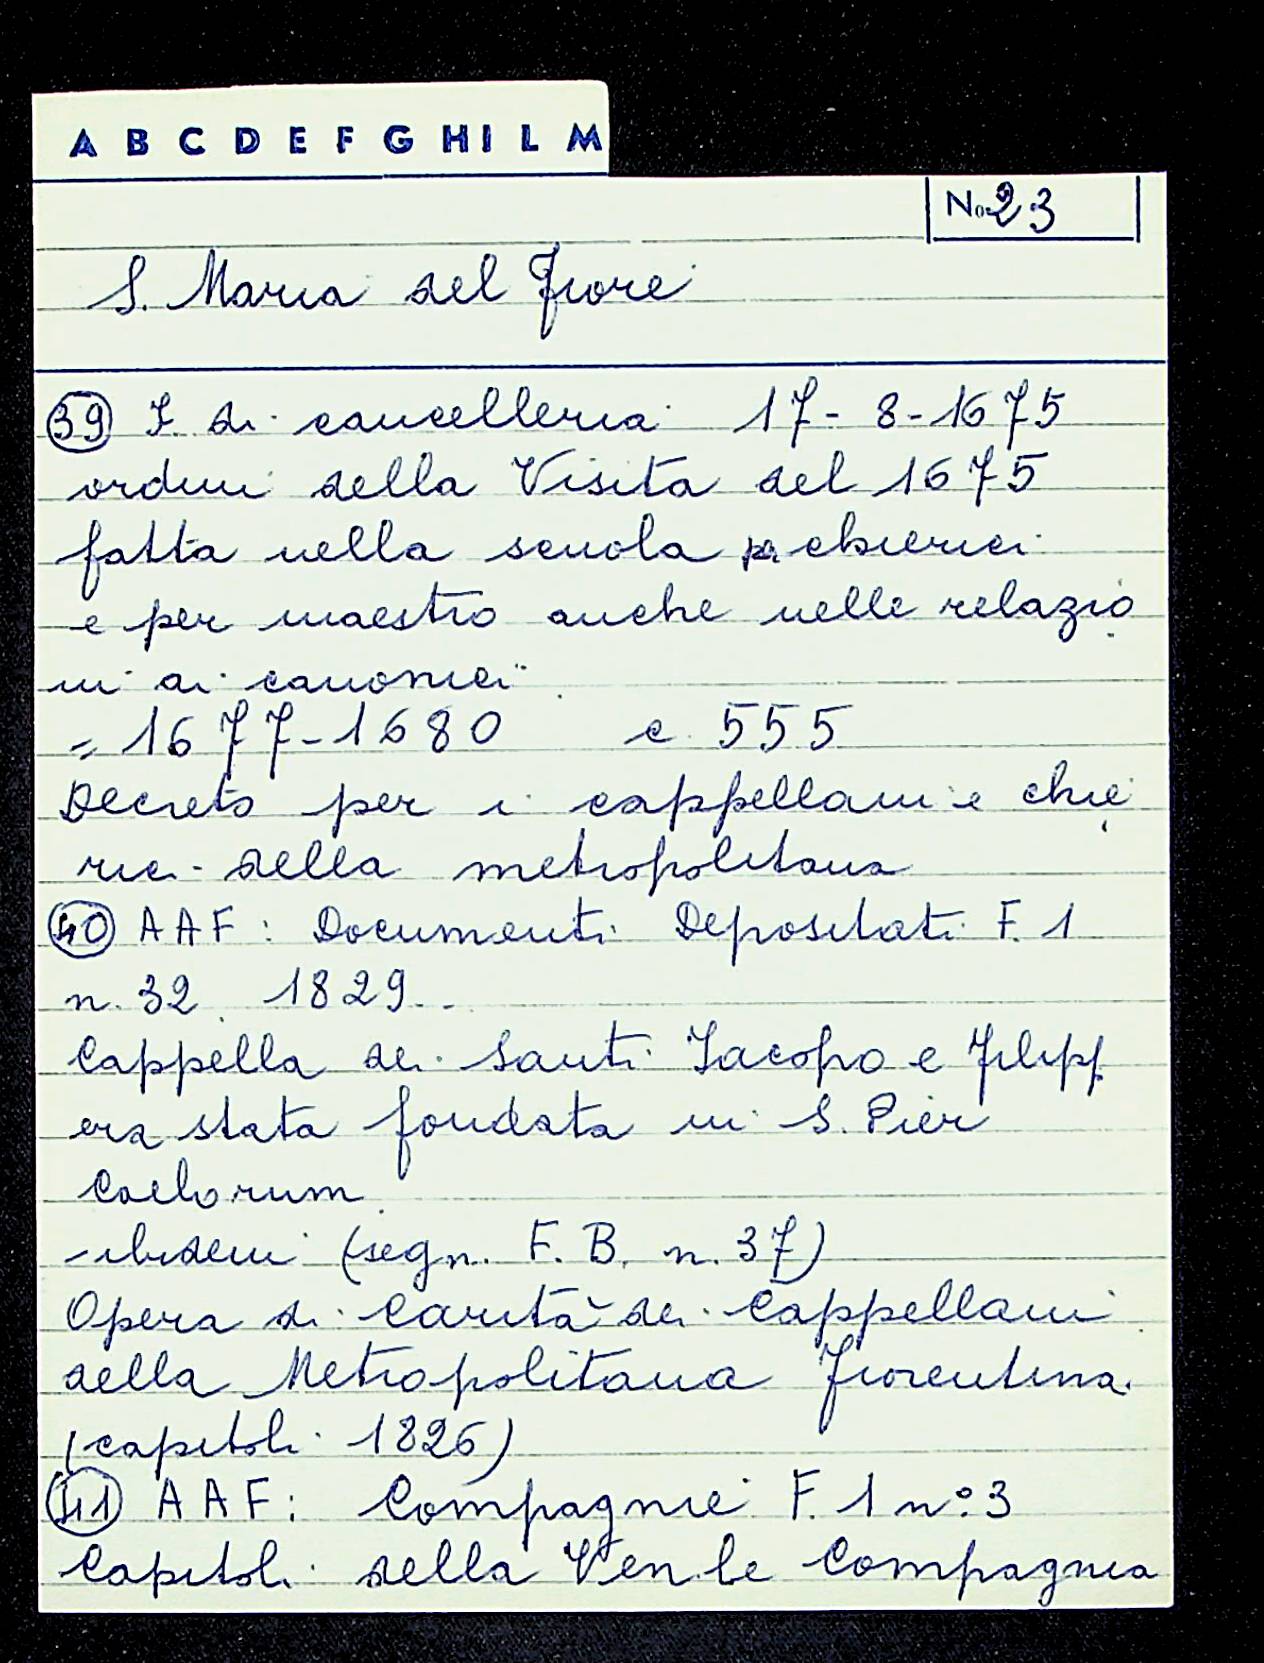 A B C D E F G H I L M
No 23
S. Maria del Fiore
39 F. di cancelleria 17-8-1675
ordini della Visita del 1675
fatta nella scuola chierici
e per maestro anche nelle relazio
ni ai canonici
= 1677-1680 c. 555
Decreto per i cappellani e chie
rici della metropolitana
40 AAF: Documenti Depositati F. 1
n. 32 1829
Cappella dei Santi Jacopo e Filipp.
era stata fondata in S. Pier
Coelorum
- ibidem (segn. F. B. n. 37)
Opera di Carità dei Cappellani
della Metropolitana Fiorentina.
(capitoli 1826)
41 AAF: Compagnie F. 1 n° 3
Capitoli della Ven.le Compagnia